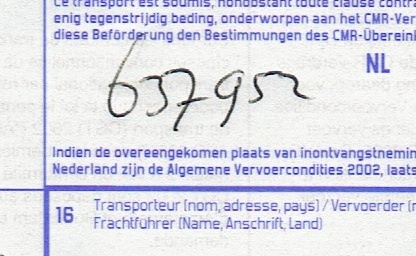 Le transport est soumis, nonobstant toute clause contra
enig tegenstrijdig beding, onderworpen aan het CMR-Ver
diese Beförderung den Bestimmungen des CMR-Überein
NL
637952
Indien de overeengekomen plaats van inontvangstnemin
Nederland zijn de Algemene Vervoercondities 2002, laats
16 Transporteur (nom, adresse, pays) / Vervoerder (n
Frachtführer (Name, Anschrift, Land)